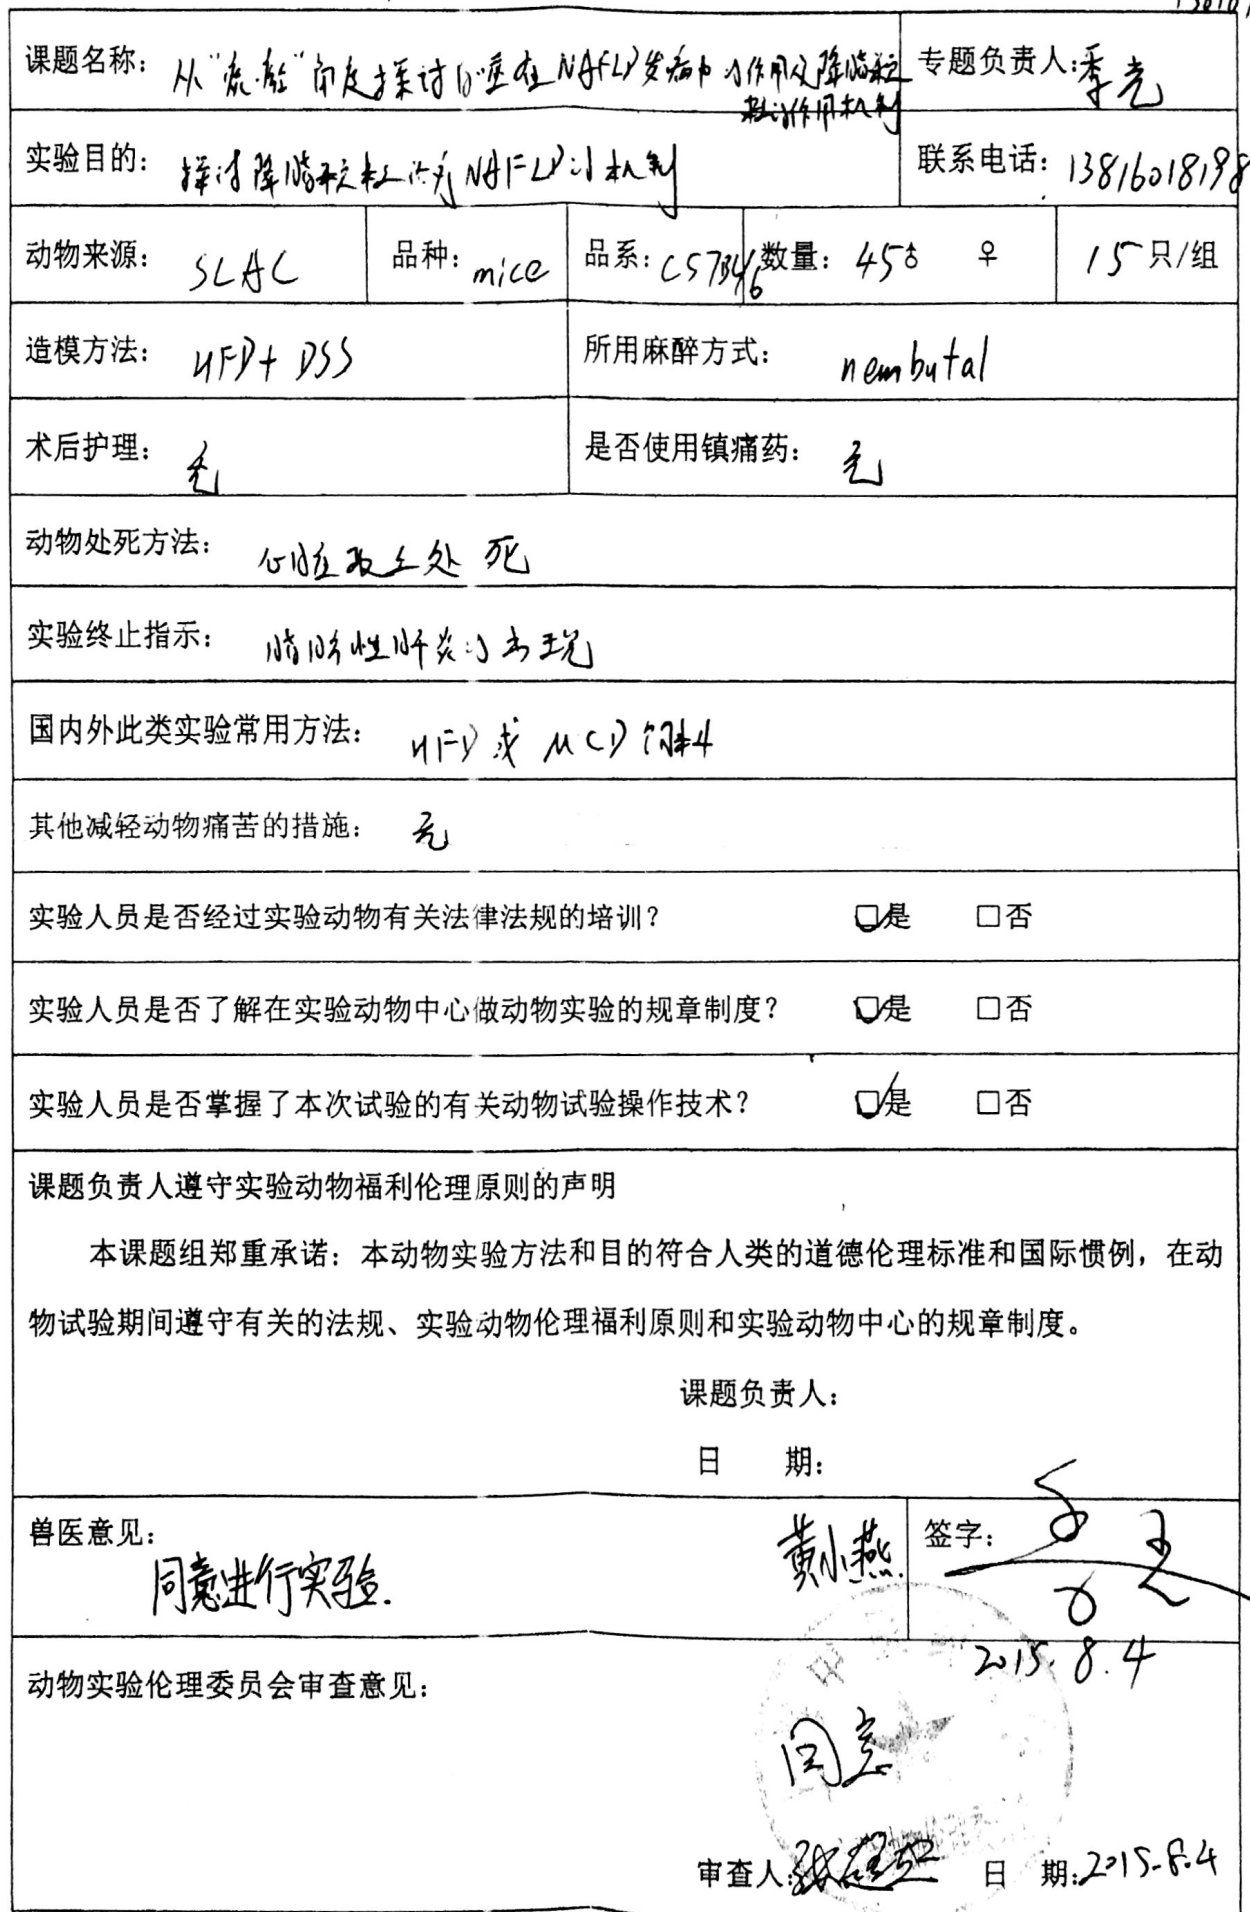 课题名称: 从"虚·瘀"角度探讨自噬在NAFLD发病中的作用及降脂颗粒 专题负责人:季光
粒的作用机制
实验目的: 探讨降脂颗粒治疗NAFLD的机制 联系电话: 13816018198
动物来源: SLAC 品种: mice 品系: C57BL/6 数量: 45♂ ♀ 15只/组
造模方法: HFD+ DSS 所用麻醉方式: nembutal
术后护理: 无 是否使用镇痛药: 无
动物处死方法: 心脏取血处死
实验终止指示: 脂肪性肝炎的出现
国内外此类实验常用方法: HFD或MCD饲料
其他减轻动物痛苦的措施: 无
实验人员是否经过实验动物有关法律法规的培训? □是 □否
实验人员是否了解在实验动物中心做动物实验的规章制度? □是 □否
实验人员是否掌握了本次试验的有关动物试验操作技术? □是 □否
课题负责人遵守实验动物福利伦理原则的声明
本课题组郑重承诺: 本动物实验方法和目的符合人类的道德伦理标准和国际惯例, 在动
物试验期间遵守有关的法规、实验动物伦理福利原则和实验动物中心的规章制度。
课题负责人:
日 期:
兽医意见: 签字:
同意进行实验. 黄小燕
2015.8.4
动物实验伦理委员会审查意见:
同意
审查人: 日 期:2015.8.4